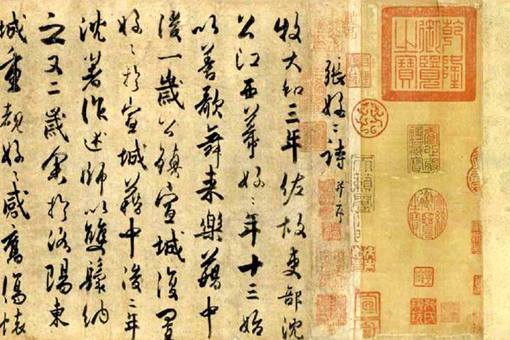 乾隆御覽之寶
張好〻詩 并序
牧大和三年佐故吏部沈
公江西幕好〻年十三始
以善歌舞來樂籍中
後一歲公鎮宣城復置
好〻於宣城籍中後二年
沈著作述師以雙鬟納
之又二歲余於洛陽東
城重覩好〻感舊傷懷